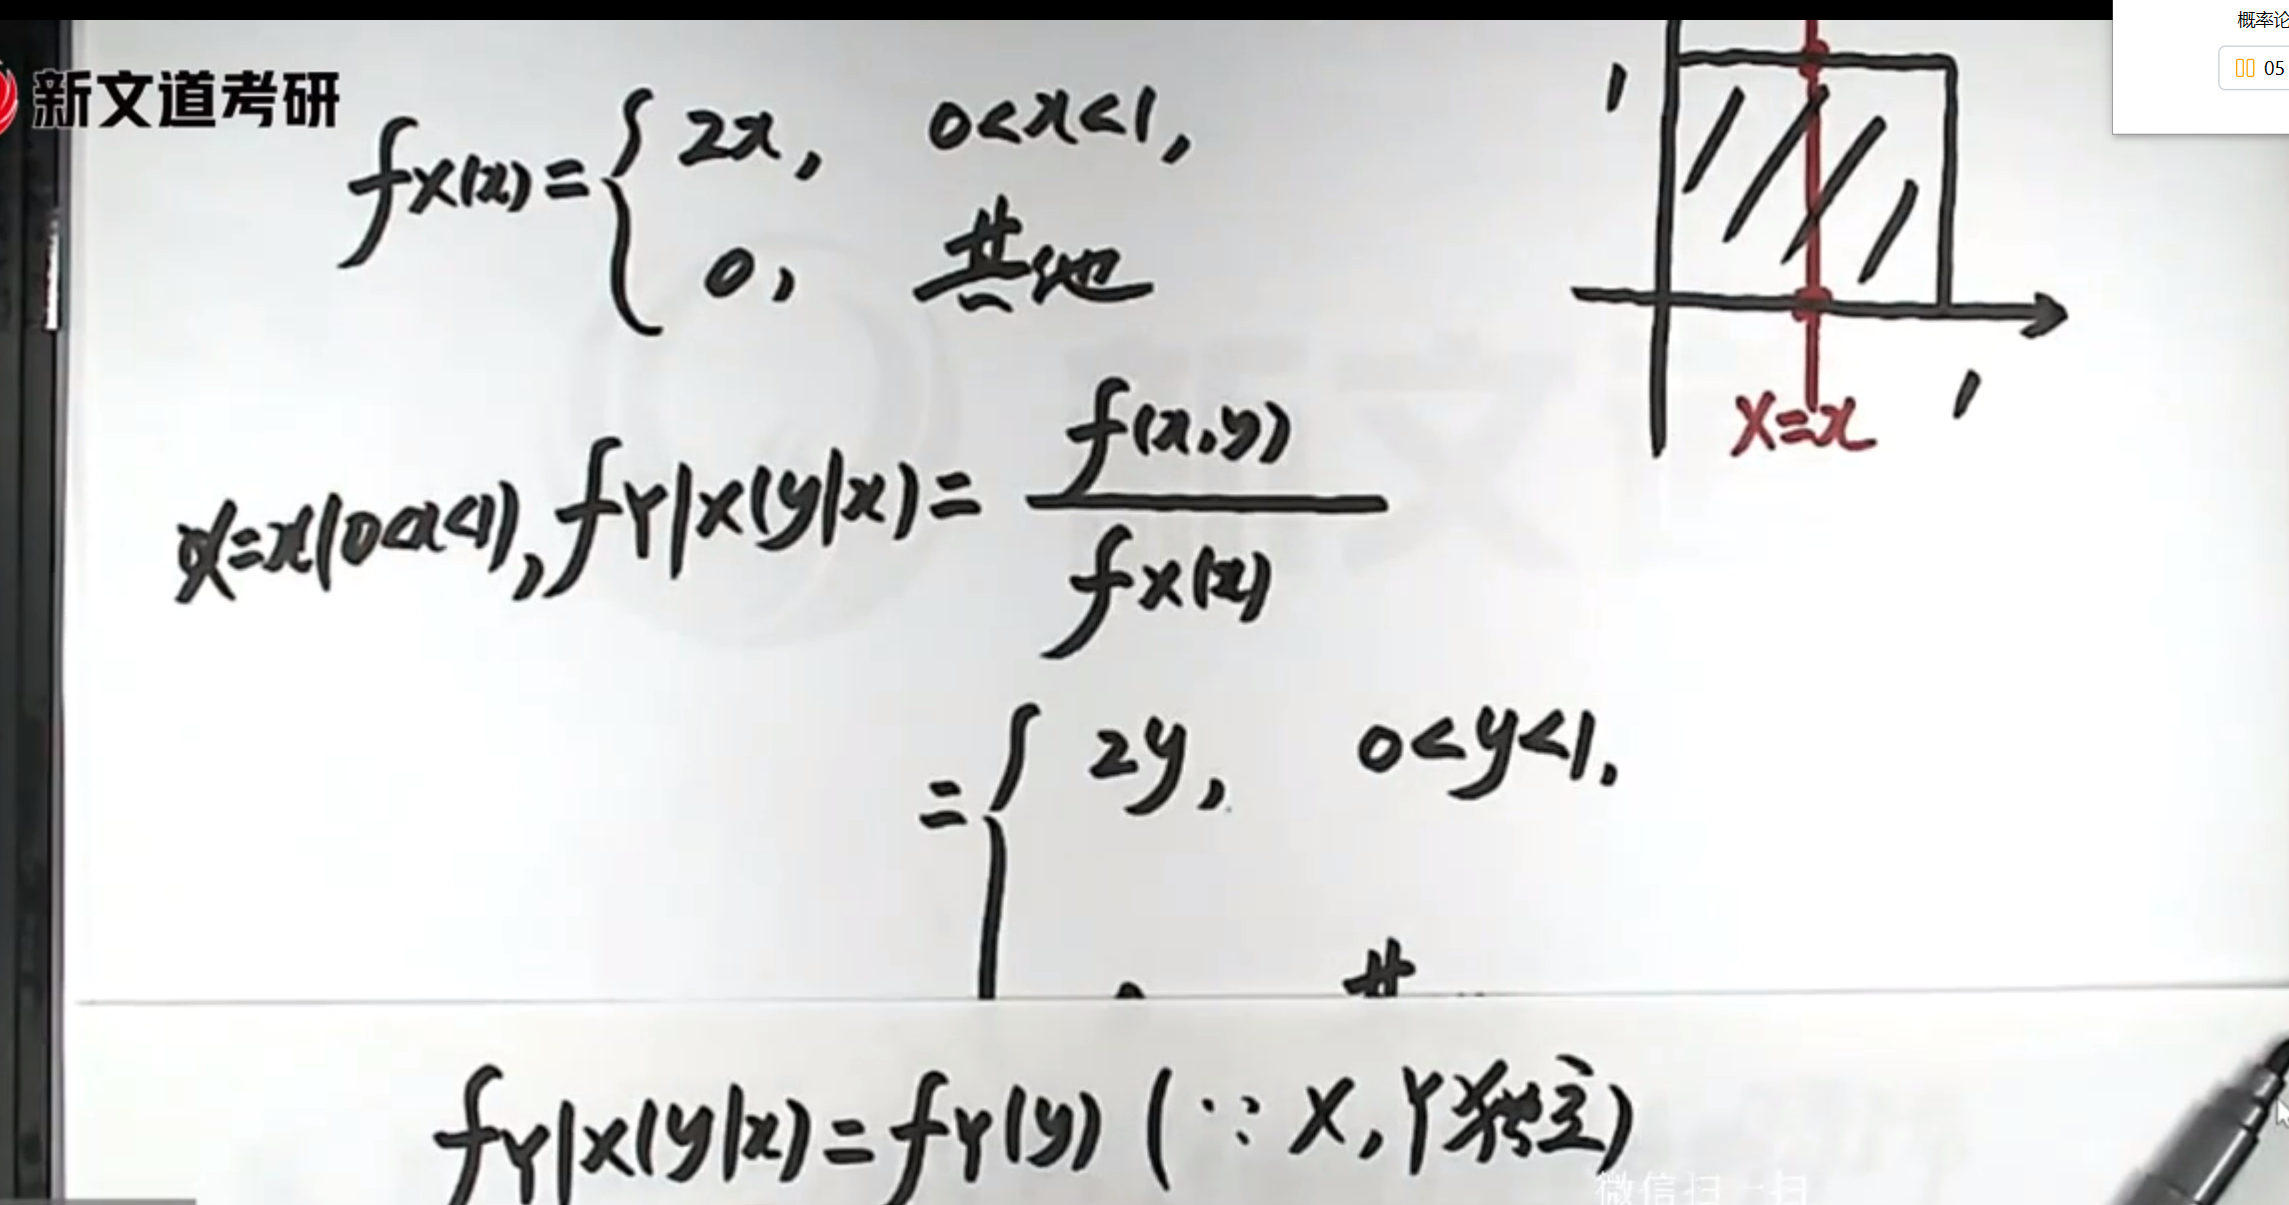 概率论
05
新文道考研
fX(x)={2x, 0<x<1,
0, 其他
1
1
X=x
X=x(0<x<1), fY|X(y|x)=f(x,y)/fX(x)
={2y, 0<y<1,
fY|X(y|x)=fY(y) (∵ X,Y独立)
微信扫一扫